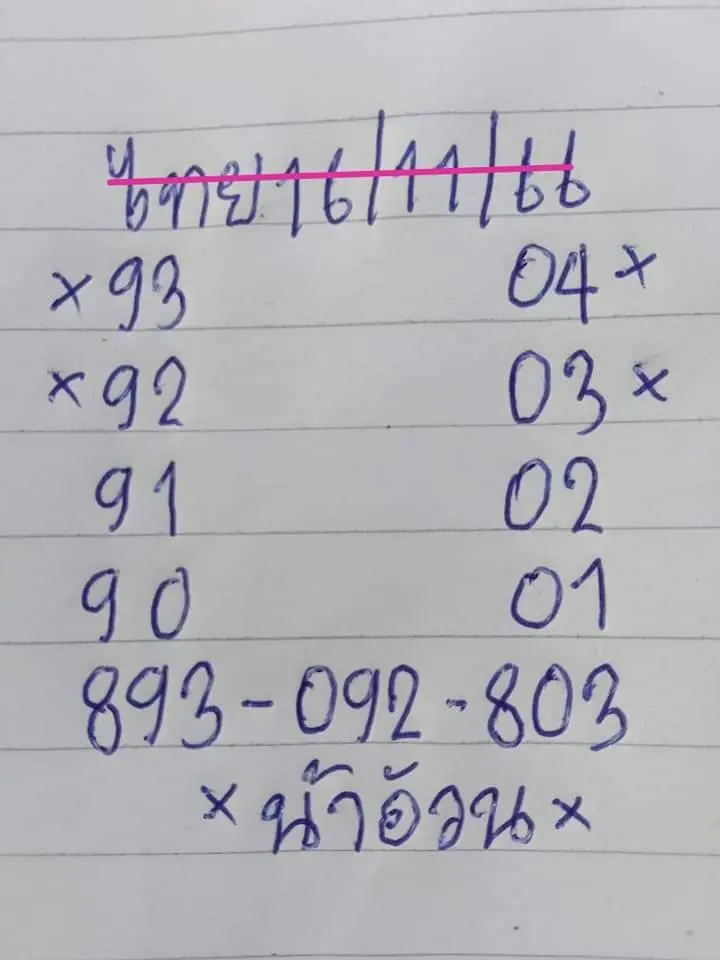 ไทย 16/11/66
×93 04×
×92 03×
91 02
90 01
893-092-803
×น้าอ้วน×